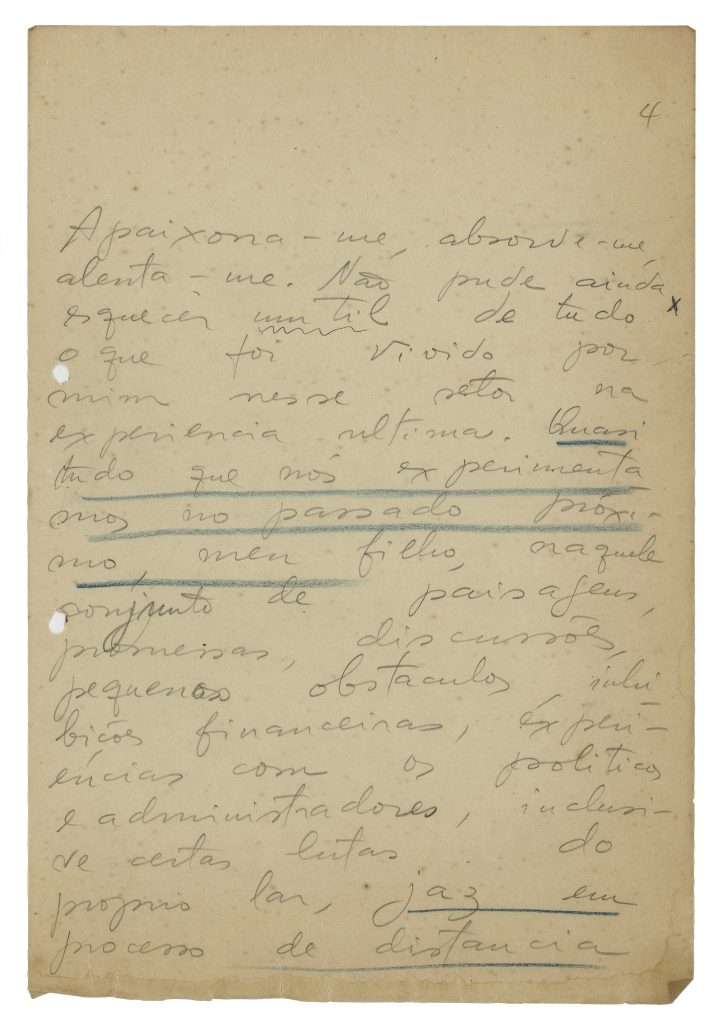 4
Apaixona-me, absorve-me,
alenta-me. Não pude ainda
esquecer um til de tudo x
o que foi vivido por
mim nesse setor na
experiencia ultima. Quasi
tudo que nós experimenta
mos no passado próxi-
mo, meu filho, naquele
conjunto de paisagens,
promessas, discussões,
pequenos obstaculos, inhi
bições financeiras, experi-
ências com os politicos
e administradores, inclusi-
ve certas lutas do
proprio lar, jaz em
processo de distancia